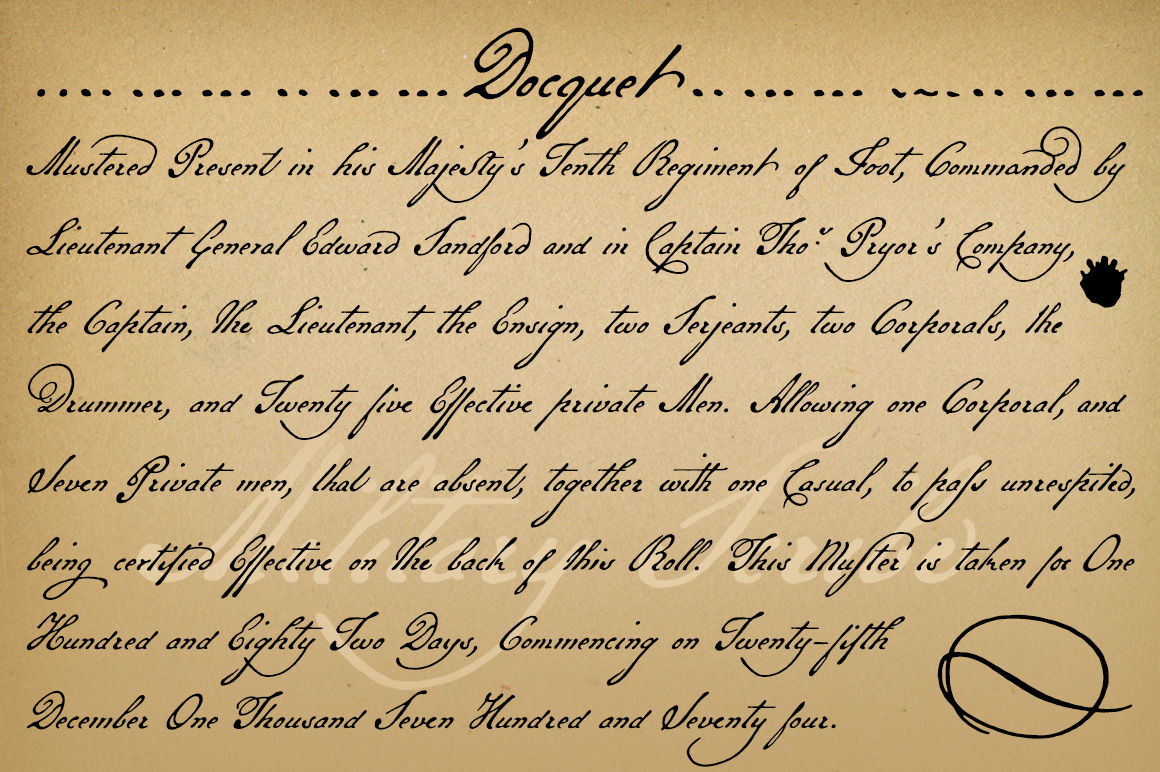 Docquet
Mustered Present in his Majesty's Tenth Regiment of Foot, Commanded by
Lieutenant General Edward Sandford and in Captain Tho.ˢ Pryor's Company,
the Captain, the Lieutenant, the Ensign, two Serjeants, two Corporals, the
Drummer, and Twenty five Effective private Men. Allowing one Corporal, and
Seven Private men, that are absent, together with one Casual, to paſs unrespited,
being certified Effective on the back of this Roll. This Muſter is taken for One
Hundred and Eighty Two Days, Commencing on Twenty-fifth
December One Thousand Seven Hundred and Seventy four.
Military Scribe